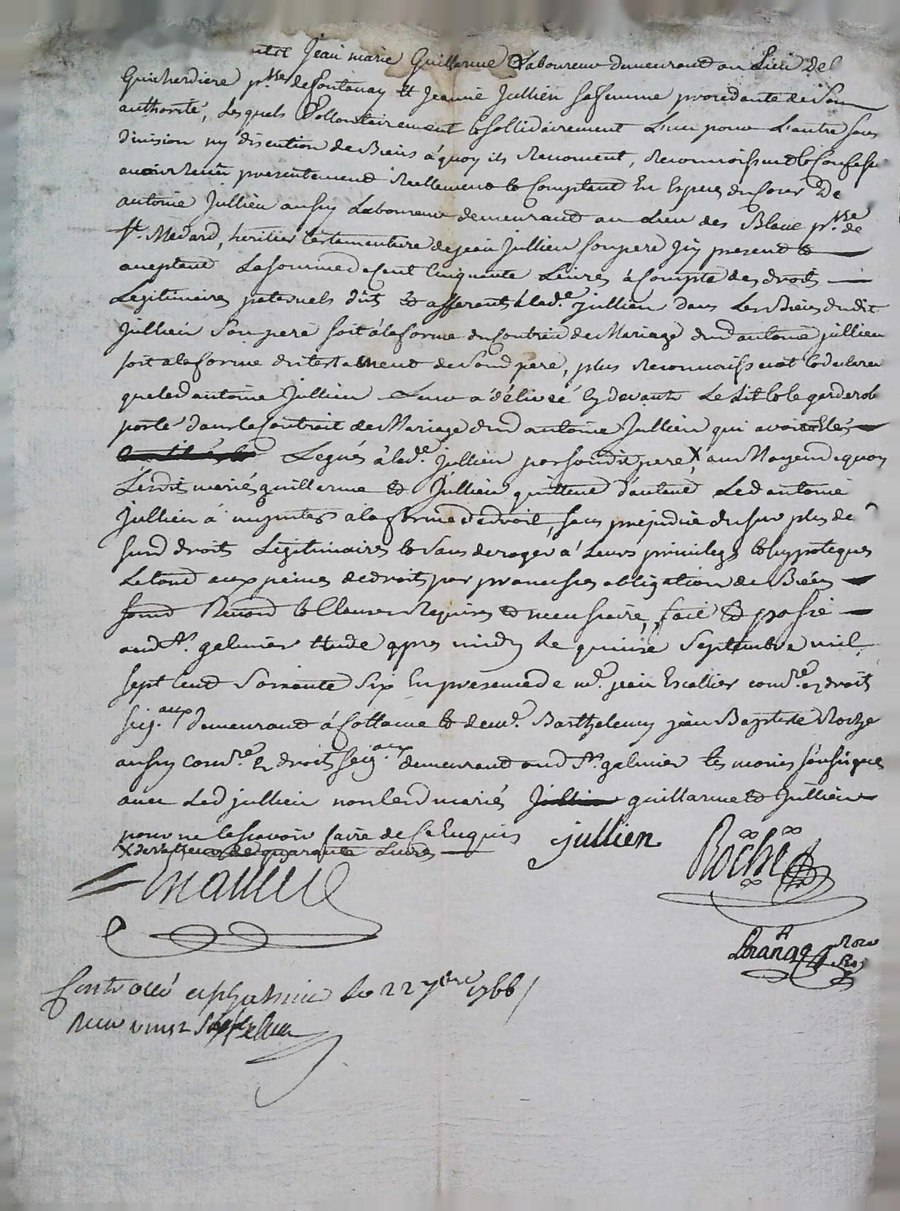 Jean marie Guillarme Laboureur demeurant au Lieu del
Guicherdiere p.sse de fontanay Et Jeanne Jullien sa femme procedante de Son
authorité, Lesquels Vollontairement & sollidairement L'un pour L'autre sans
division ny discution de Biens à quoy ils Renoncent, Reconnoissent & Confess
avoir Reçu presentement Reellement & Comptant En Espece du Cour De
antoine Jullien aussy Laboureur demeurant au Lieu des Blanc p.sse de
St. Medard, heritier testamentaire de jean Jullien son pere Icy present &
aceptant La somme de Cent Cinquante Livres à Compte des droits
Legitimaires paternels dûs & afferant à lad.e jullien dans Les Biens dudit
Jullien Son pere soit à la forme du Contrat de Mariage dud antoine jullien
soit a la forme du testament de Sond pere, plus Reconnoissent & declarent
que led antoine Jullien Leur a délivré Cy devant Le Lit & le garderob
porté dans le Contrat de Mariage dud antoine Jullien qui avoit Eté
Legués à lad.e Jullien par sondit pere X au Moyend quoy
Lesdit mariés guillarme & Jullien quittent d'autant Led antoine
Jullien à a la forme de droit, sans prejudice du sur plus de
surd droits Légitimaires & sans deroger à Leurs privileges & hypoteques
Le tout aux peines de droit par promesses obligation de Biens
Renond & Clauses Requises & necessaire, fait & passé
aud St. galmier Etude apres midy Le quinze Septembre mil
sept Cent Soixante Six En presence de m.e jean Escallier com.re Ez droit
seig.aux demeurant à & de m.e Barthelemy jean Baptiste Roche
aussy com.re Ez droit seig.aux demeurant aud St. galmier temoins soussignes
avec Led jullien non lesd mariés guillarme & Jullien
pour ne le sçavoir faire de ce Enquis
X de valleur de quarante Livres
jullien
Roche
Controllé a St galmier Le 22 7bre 1766
Reçu vingt